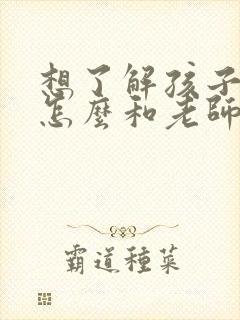 想了解孩子
怎麼和老師
霸道種菜